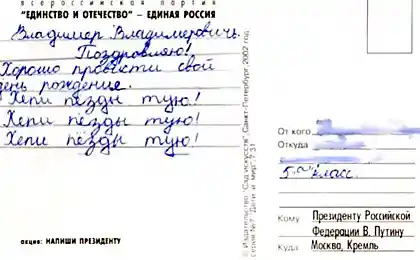 всероссийская партия
"ЕДИНСТВО И ОТЕЧЕСТВО" – ЕДИНАЯ РОССИЯ
Владимер Владимерович.
Поздровляю!
Хорошо провисти свой
день рождение.
Хепи пёзды тую!
Хепи пёзды тую!
Хепи пёзды тую!
акция: НАПИШИ ПРЕЗИДЕНТУ
© Издательство "Сад искусств", Санкт-Петербург, 2002 год
серия №7 "Дети и мир": 7.31
От кого
Откуда
5 "а" класс.
Кому Президенту Российской
Федерации В. Путину
Куда Москва, Кремль